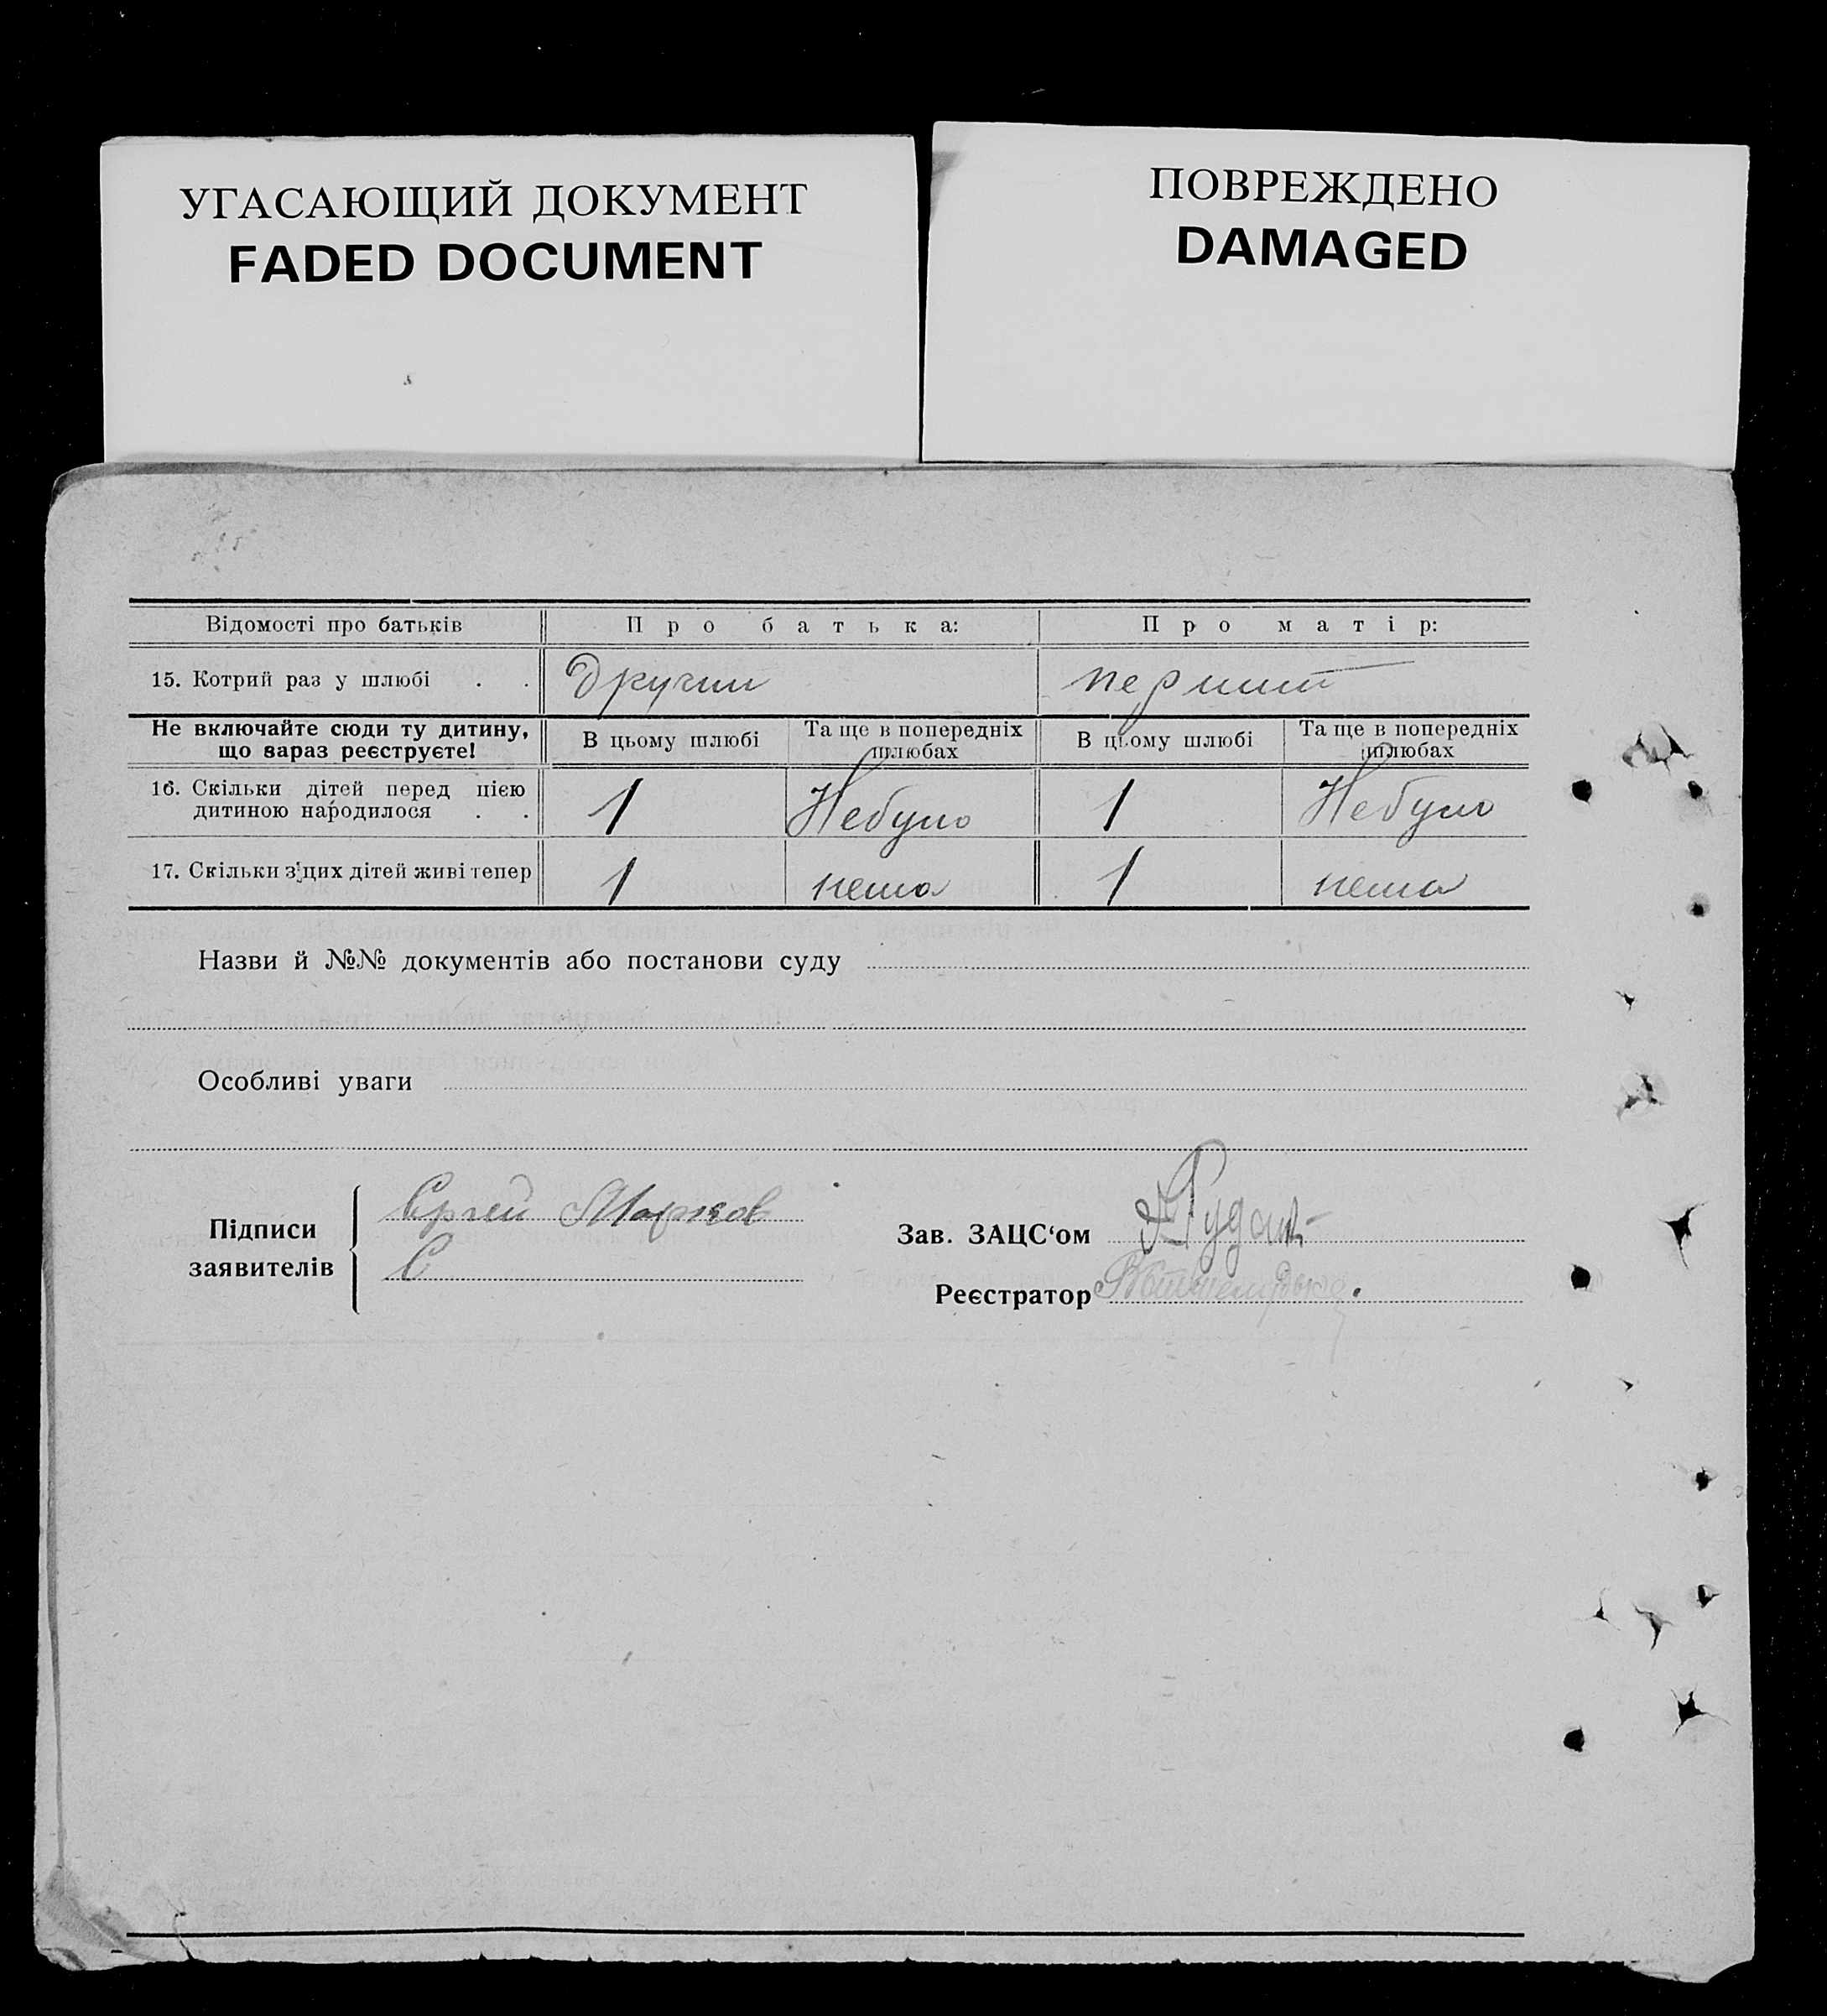 УГАСАЮЩИЙ ДОКУМЕНТ
FADED DOCUMENT
ПОВРЕЖДЕНО
DAMAGED
Відомості про батьків Про батька: Про матір:
15. Котрий раз у шлюбі . . Другий перший
Не включайте сюди ту дитину, що зараз реєструєте! В цьому шлюбі Та ще в попередніх шлюбах В цьому шлюбі Та ще в попередніх шлюбах
16. Скільки дітей перед цією дитиною народилося . . 1 Небуло 1 Небуло
17. Скільки з цих дітей живі тепер 1 нема 1 нема
Назви й №№ документів або постанови суду
Особливі уваги
Підписи заявителів
С
Зав. ЗАЦС‘ом
Реєстратор